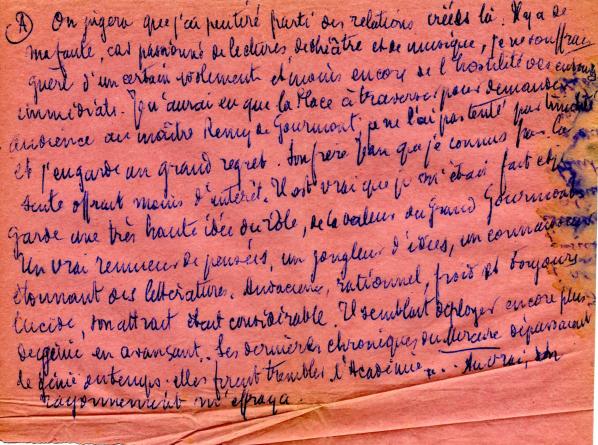 (A) On jugera que j'ai peu tiré parti des relations créées là. Il y a de
ma faute, car passionné de lectures, de théâtre et de musique, je ne souffrais
guère d'un certain isolement et moins encore de l'hostilité des
immédiats. Je n'aurais eu que la Place à traverser pour demander
audience au maître Remy de Gourmont, je ne l'ai pas tenté par timidité
et j'en garde un grand regret. Son frère Jean que je connus par la
suite offrait moins d'intérêt. Il est vrai que je m'étais fait et
garde une très haute idée du rôle, de la valeur du Grand Gourmont
Un vrai remueur de pensées, un jongleur d'idées, un connaisseur
étonnant des littératures. Audacieux, rationnel, froid et toujours
lucide, son attrait était considérable. Il semblait déployer encore plus
de génie en avançant. Ses dernières chroniques du Mercure dépassaient
de génie : elles firent trembler l'Académie... Au vrai, son
rayonnement m'effraya.